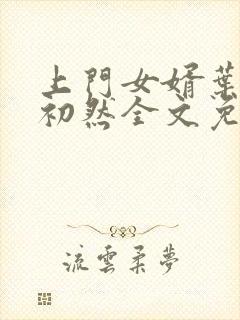 上門女婿葉
初然全文免
流雲柔夢